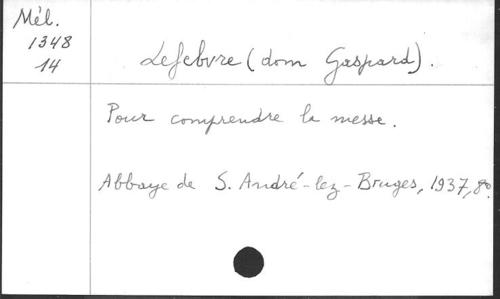 Mél.
1348
14
Lefebvre (dom Gaspard).
Pour comprendre la messe.
Abbaye de S. André-lez-Bruges, 1937, 8º.